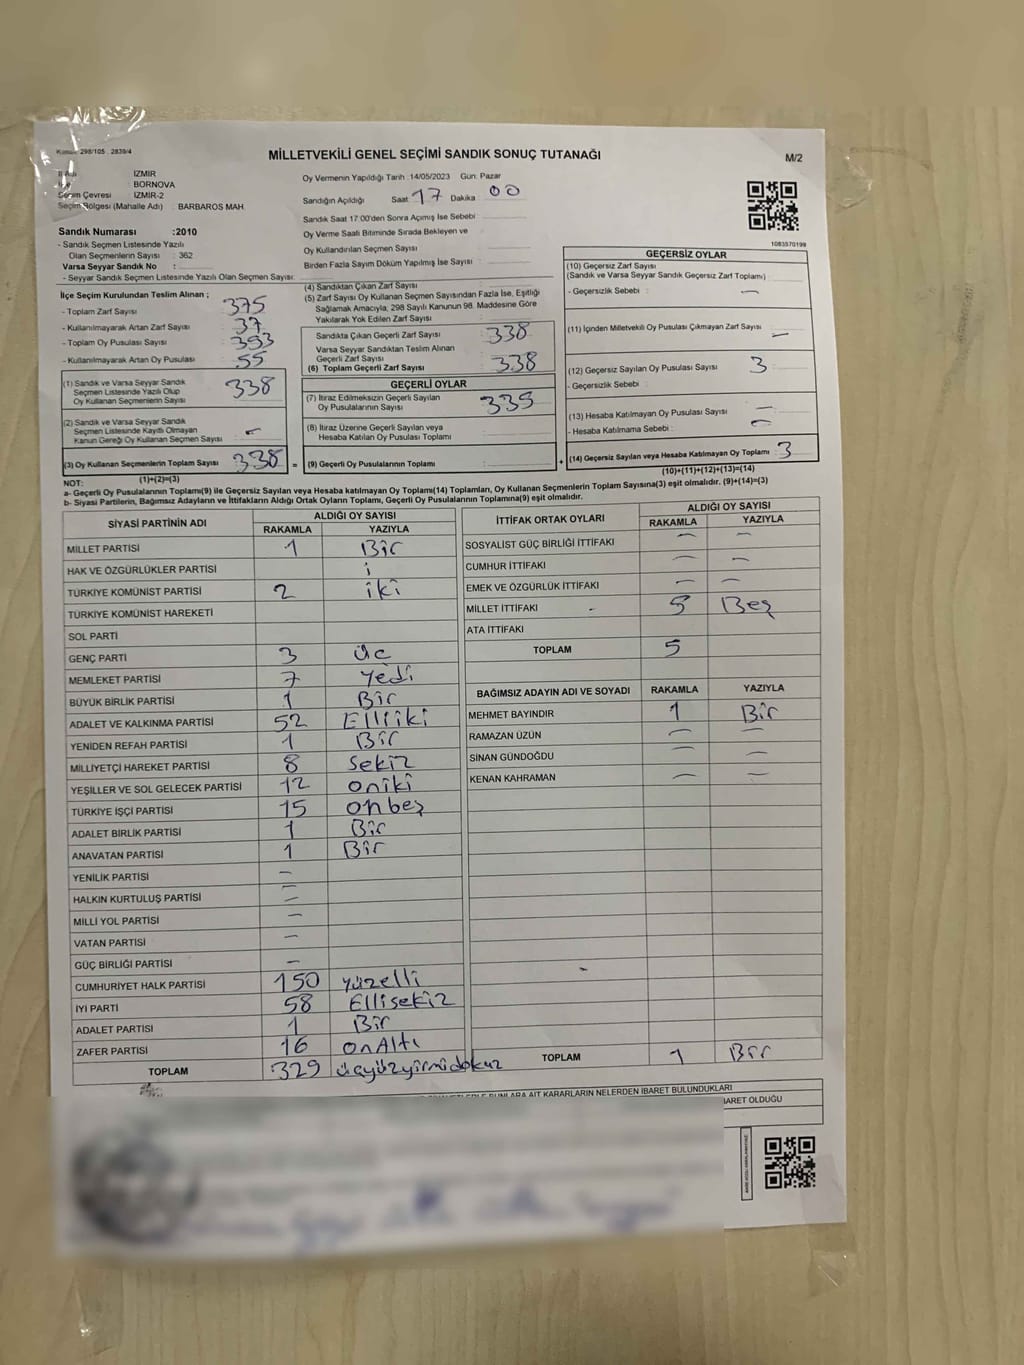 Kanun: 298/105 . 2839/4
MİLLETVEKİLİ GENEL SEÇİMİ SANDIK SONUÇ TUTANAĞI
M/2
İl Adı İZMİR
BORNOVA
Seçim Çevresi İZMİR-2
Seçim Bölgesi (Mahalle Adı) : BARBAROS MAH.
Oy Vermenin Yapıldığı Tarih :14/05/2023 Gün: Pazar
Sandığın Açıldığı Saat 17 Dakika 00
Sandık Saat 17:00'den Sonra Açımış İse Sebebi
Oy Verme Saati Bitiminde Sırada Bekleyen ve
Oy Kullandırılan Seçmen Sayısı
Birden Fazla Sayım Döküm Yapılmış İse Sayısı :
Sandık Numarası :2010
- Sandık Seçmen Listesinde Yazılı
Olan Seçmenlerin Sayısı : 362
Varsa Seyyar Sandık No :
- Seyyar Sandık Seçmen Listesinde Yazılı Olan Seçmen Sayısı:
1083570199
İlçe Seçim Kurulundan Teslim Alınan ;
- Toplam Zarf Sayısı : 375
- Kullanılmayarak Artan Zarf Sayısı : 37
- Toplam Oy Pusulası Sayısı : 393
- Kullanılmayarak Artan Oy Pusulası : 55
(1) Sandık ve Varsa Seyyar Sandık
Seçmen Listesinde Yazılı Olup
Oy Kullanan Seçmenlerin Sayısı 338
(2) Sandık ve Varsa Seyyar Sandık
Seçmen Listesinde Kayıtlı Olmayan
Kanun Gereği Oy Kullanan Seçmen Sayısı : -
(3) Oy Kullanan Seçmenlerin Toplam Sayısı 338 =
(1)+(2)=(3)
(4) Sandıktan Çıkan Zarf Sayısı :
(5) Zarf Sayısı Oy Kullanan Seçmen Sayısından Fazla İse, Eşitliği
Sağlamak Amacıyla; 298 Sayılı Kanunun 98. Maddesine Göre
Yakılarak Yok Edilen Zarf Sayısı :
Sandıkta Çıkan Geçerli Zarf Sayısı : 338
Varsa Seyyar Sandıktan Teslim Alınan
Geçerli Zarf Sayısı :
(6) Toplam Geçerli Zarf Sayısı : 338
GEÇERLİ OYLAR
(7) İtiraz Edilmeksizin Geçerli Sayılan
Oy Pusulalarının Sayısı : 335
(8) İtiraz Üzerine Geçerli Sayılan veya
Hesaba Katılan Oy Pusulası Toplamı :
(9) Geçerli Oy Pusulalarının Toplamı : +
GEÇERSİZ OYLAR
(10) Geçersiz Zarf Sayısı
(Sandık ve Varsa Seyyar Sandık Geçersiz Zarf Toplamı)
- Geçersizlik Sebebi : -
(11) İçinden Milletvekili Oy Pusulası Çıkmayan Zarf Sayısı : -
(12) Geçersiz Sayılan Oy Pusulası Sayısı : 3
- Geçersizlik Sebebi :
(13) Hesaba Katılmayan Oy Pusulası Sayısı : -
- Hesaba Katılmama Sebebi : -
(14) Geçersiz Sayılan veya Hesaba Katılmayan Oy Toplamı : 3
(10)+(11)+(12)+(13)=(14)
NOT:
a- Geçerli Oy Pusulalarının Toplamı(9) ile Geçersiz Sayılan veya Hesaba katılmayan Oy Toplamı(14) Toplamları, Oy Kullanan Seçmenlerin Toplam Sayısına(3) eşit olmalıdır. (9)+(14)=(3)
b- Siyasi Partilerin, Bağımsız Adayların ve İttifakların Aldığı Ortak Oyların Toplamı, Geçerli Oy Pusulalarının Toplamına(9) eşit olmalıdır.
SİYASİ PARTİNİN ADI ALDIĞI OY SAYISI
RAKAMLA YAZIYLA
MİLLET PARTİSİ 1 Bir
HAK VE ÖZGÜRLÜKLER PARTİSİ
TÜRKİYE KOMÜNİST PARTİSİ 2 iki
TÜRKİYE KOMÜNİST HAREKETİ
SOL PARTİ
GENÇ PARTİ 3 üç
MEMLEKET PARTİSİ 7 Yedi
BÜYÜK BİRLİK PARTİSİ 1 Bir
ADALET VE KALKINMA PARTİSİ 52 Elliiki
YENİDEN REFAH PARTİSİ 1 Bir
MİLLİYETÇİ HAREKET PARTİSİ 8 Sekiz
YEŞİLLER VE SOL GELECEK PARTİSİ 12 oniki
TÜRKİYE İŞÇİ PARTİSİ 15 onbeş
ADALET BİRLİK PARTİSİ 1 Bir
ANAVATAN PARTİSİ 1 Bir
YENİLİK PARTİSİ -
HALKIN KURTULUŞ PARTİSİ -
MİLLİ YOL PARTİSİ -
VATAN PARTİSİ -
GÜÇ BİRLİĞİ PARTİSİ -
CUMHURİYET HALK PARTİSİ 150 yüzelli
İYİ PARTİ 58 Ellisekiz
ADALET PARTİSİ 1 Bir
ZAFER PARTİSİ 16 onAltı
TOPLAM 329 üçyüzyirmidokuz
İTTİFAK ORTAK OYLARI ALDIĞI OY SAYISI
RAKAMLA YAZIYLA
SOSYALİST GÜÇ BİRLİĞİ İTTİFAKI - -
CUMHUR İTTİFAKI - -
EMEK VE ÖZGÜRLÜK İTTİFAKI - -
MİLLET İTTİFAKI 5 Beş
ATA İTTİFAKI
TOPLAM 5
BAĞIMSIZ ADAYIN ADI VE SOYADI RAKAMLA YAZIYLA
MEHMET BAYINDIR 1 Bir
RAMAZAN ÜZÜN - -
SİNAN GÜNDOĞDU - -
KENAN KAHRAMAN - -
TOPLAM 1 Bir
BUNLARA AİT KARARLARIN NELERDEN İBARET BULUNDUKLARI
İBARET OLDUĞU